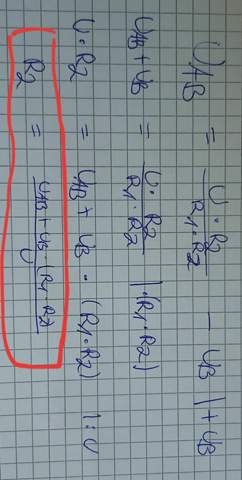 U_AB = U · R2 / R1 · R2 − U_B | + U_B
U_AB + U_B = U · R2 / R1 · R2 | · (R1 · R2)
U · R2 = U_AB + U_B · (R1 · R2) | : U
R2 = U_AB + U_B · (R1 · R2) / U